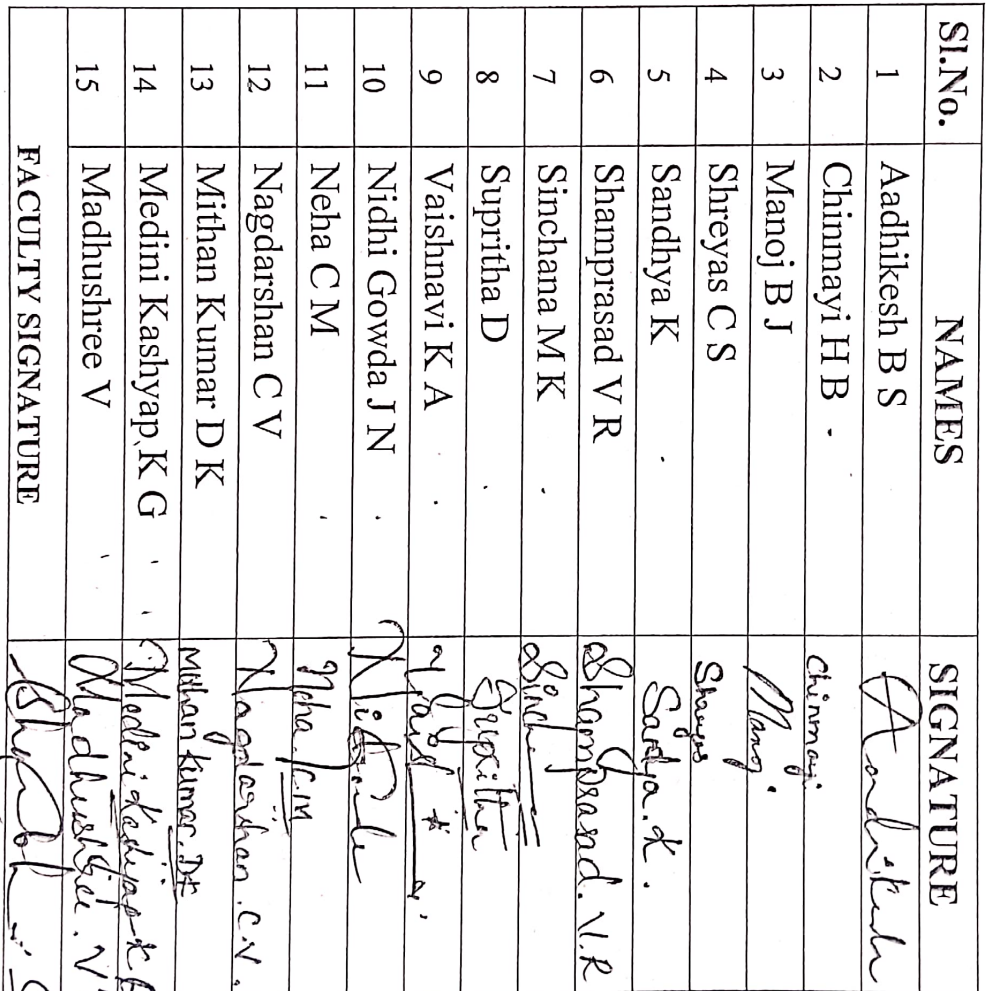 Sl.No. NAMES SIGNATURE
1 Aadhikesh B S
2 Chinmayi H B Chinmayi
3 Manoj B J Manoj
4 Shreyas C S Shreyas
5 Sandhya K Sandya.K.
6 Shamprasad V R Shamprasad.V.R
7 Sinchana M K
8 Supritha D Supritha
9 Vaishnavi K A
10 Nidhi Gowda J N
11 Neha C M Neha.C.M
12 Nagdarshan C V Nagdarshan.C.V.
13 Mithan Kumar D K Mithan Kumar.DK
14 Medini Kashyap K G Medini Kashyap K
15 Madhushree V Madhushree.V
FACULTY SIGNATURE